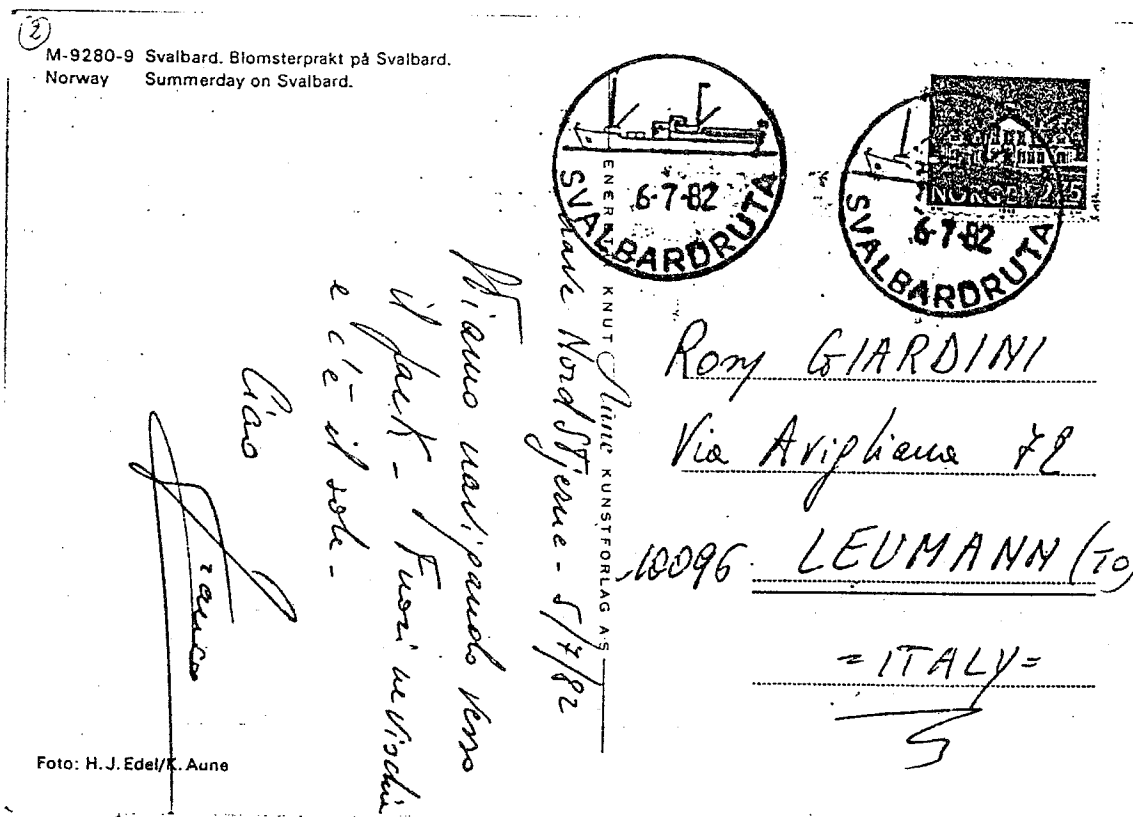 2
M-9280-9 Svalbard. Blomsterprakt på Svalbard.
Norway Summerday on Svalbard.
SVALBARDRUTA
6-7-82
NORGE
SVALBARDRUTA
6-7-82
ENERETT KNUT Aune KUNSTFORLAG A·S
nave Nord Stjerne - 5/7/82
Stiamo navigando verso
il pack - Fuori nevischia
e c'è il sole -
Ciao
Franco
Rony GIARDINI
Via Avigliana 72
10096 LEUMANN (TO)
=ITALY=
Foto: H.J. Edel/K. Aune